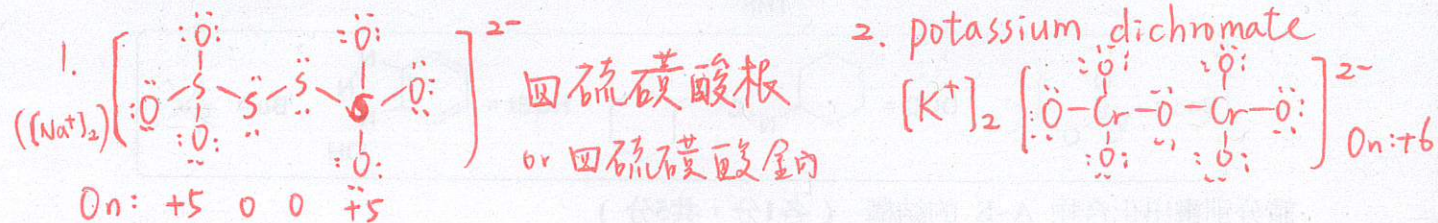 1. ([Na⁺]₂) [:Ö: S S S S O O O O O]²⁻ 四硫磺酸根
or 四硫磺酸鈉
On: +5 0 0 +5
2. potassium dichromate
[K⁺]₂ [O-Cr-O-Cr-O O O O O]²⁻ On:+6